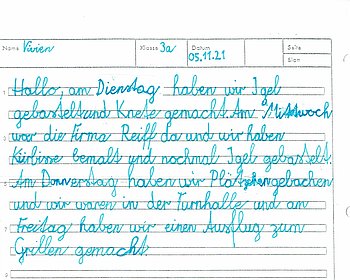 Name Vivien Klasse 3a Datum 05.11.21 Seite
Blatt
Hallo, am Dienstag haben wir Igel
gebastelt und Knete gemacht. Am Mittwoch
war die Firma Reiff da und wir haben
Kürbisse bemalt und nochmal Igel gebastelt.
Am Donnerstag haben wir Plätzchen gebachen
und wir waren in der Turnhalle und am
Freitag haben wir einen Ausflug zum
Grillen gemacht.